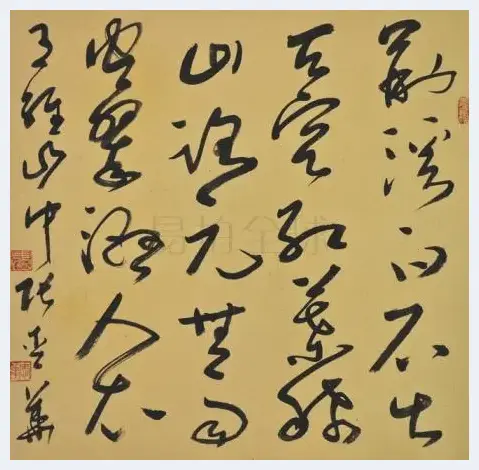 荆溪白石出
天寒紅葉稀
山路元無雨
空翠濕人衣
王維山中 張華
易拍全球